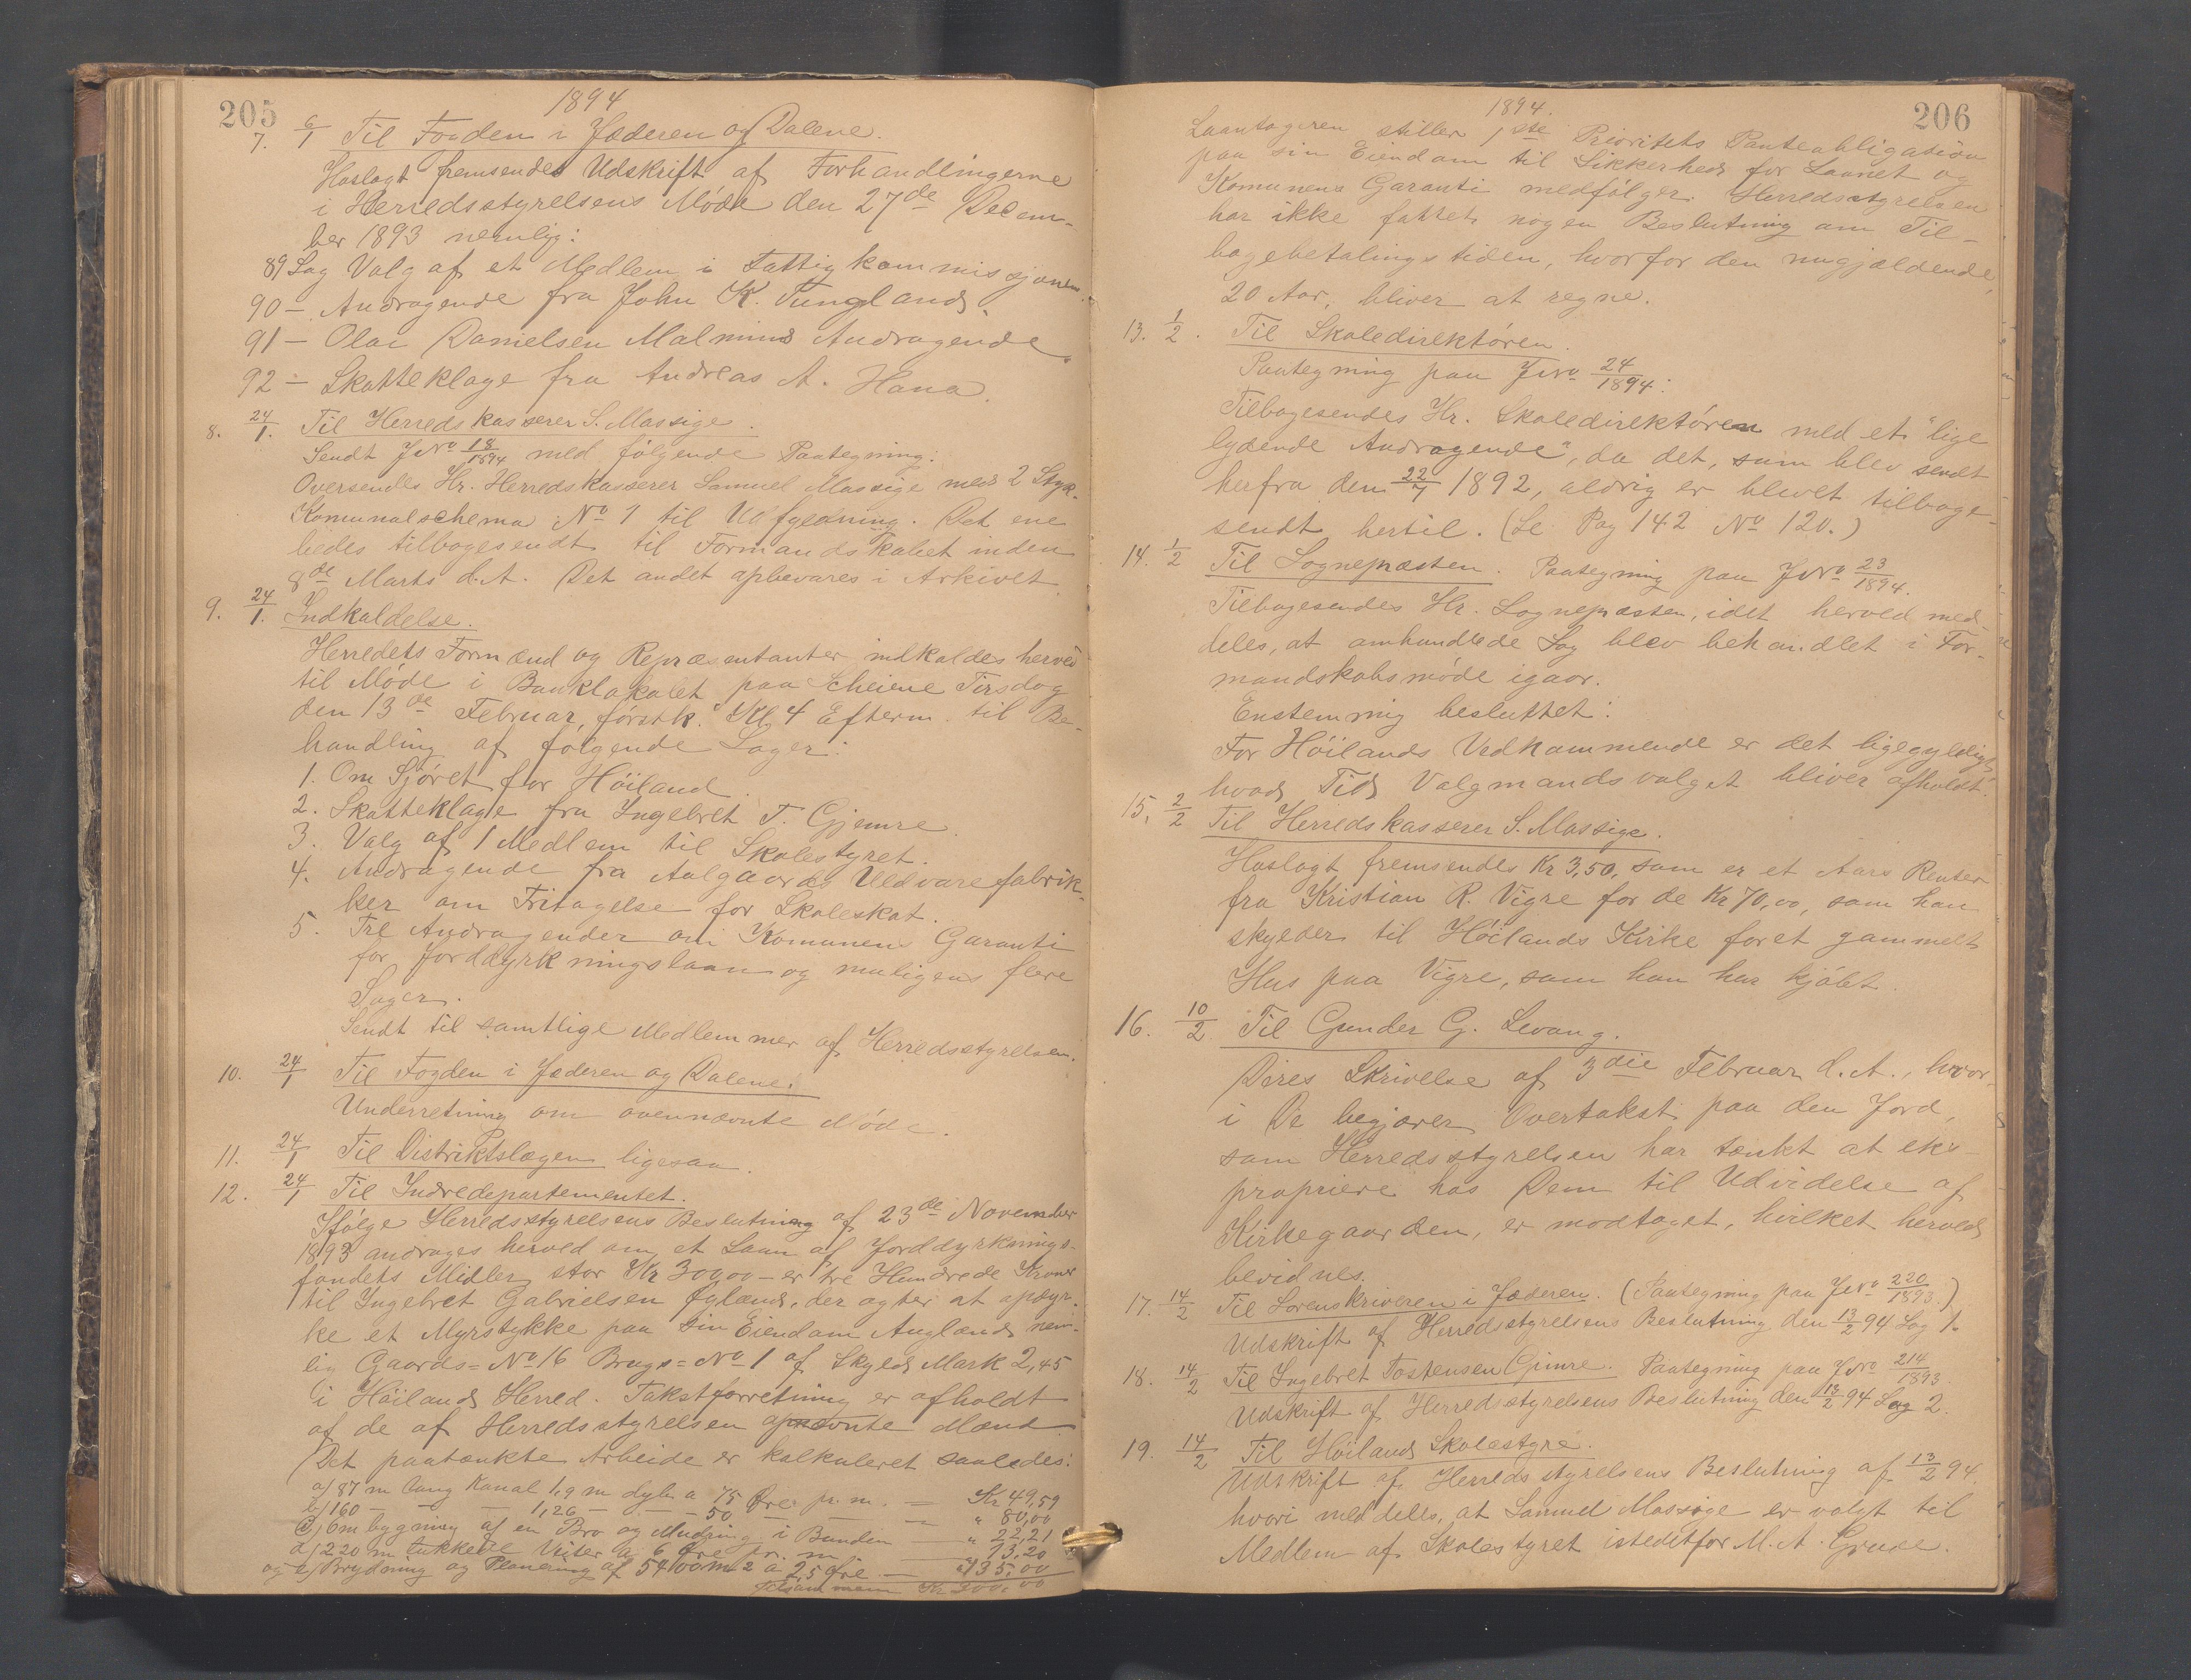 205
1894
7. 6/1 Til Fogden i Jæderen og Dalene.
Hoslagt fremsendes Udskrift af Forhandlingerne
i Herredsstyrelsens Møde den 27de Decem-
ber 1893 nemlig:
89 Sag Valg af et Medlem i Fattigkommissjonen.
90 – Andragende fra John K. Tunglands.
91 – Olai Danielsen Malmins Andragende.
92 – Skatteklage fra Andreas A. Hana.
8. 24/1. Til Herredskasserer S. Massige.
Sendt JNo 18/1894 med følgende Paategning:
Oversendes Hr. Herredskasserer Samuel Massige med 2 Styk.
Komunalschema No 1 til Udfyldning. Det ene
bedes tilbagesendt til Formandskabet inden
8de Marts d.A. Det andet opbevares i Arkivet.
9. 24/1. Indkaldelse.
Herredets Formænd og Repræsentanter indkaldes herved
til Møde i Banklokalet paa Scheiene Tirsdag
den 13de Februar, førstk. Kl. 4 Efterm. til Be-
handling af følgende Sager:
1. Om Sjøret for Høiland.
2. Skatteklage fra Ingebret T. Gjemre.
3. Valg af 1 Medlem til Skolestyret.
4. Andragende fra Aalgaards Uldvarefabrik-
ker om Fritagelse for Skoleskat.
5. Tre Andragender om Komunens Garanti
for Jorddyrkningslaan og muligens flere
Sager.
Sendt til samtlige Medlemmer af Herredsstyrelsen.
10. 24/1 Til Fogden i Jæderen og Dalene.
Underretning om ovennævnte Møde.
11. 24/1 Til Distriktslægen ligesaa.
12. 24/1 Til Indredepartementet.
Ifølge Herredsstyrelsens Beslutning af 23de November
1893 andrages herved om et Laan af Jorddyrknings-
fondets Midler stor Kr 300,00 – er tre Hundrede Kroner
til Ingebret Gabrielsen Øgland, der agter at opdyr-
ke et Myrstykke paa sin Eiendom Auglænd nem-
lig Gaards=No 16 Brugs=No 1 af Skyld Mark 2,45
i Høilands Herred. Takstforretning er afholdt
af de af Herredsstyrelsen opnævnte Mænd.
Det paatænkte Arbeide er kalkuleret saaledes:
a) 87 m lang Kanal 1,9 m dyb a 75 Øre pr. m. — Kr 49,59
b) 160 — — — 1,26 — — — 50 — — — " 80,00
c) Ombygning af en Bro og Mudring i Bunden — " 22,21
d) 220 m lukkede Veiter a 6 Øre pr. m — 13,20
og e) Brydning og Planering af 5400 m2 a 2,5 Øre — " 135,00
Tilsammen Kr 300,00
206
1894.
Laantageren stiller 1ste Prioritets Panteobligation
paa sin Eiendom til Sikkerhed for Laanet og
Komunens Garanti medfølger. Herredsstyrelsen
har ikke fattet nogen Beslutning om Til-
bagebetalingstiden, hvorfor den nugjældende,
20 Aar, bliver at regne.
13. 1/2. Til Skoledirektøren.
Paategning paa JNo 24/1894:
Tilbagesendes Hr. Skoledirektøren med et "lige
lydende Andragende", da det, som blev sendt
herfra den 22/7 1892, aldrig er blevet tilbage-
sendt hertil. (Se Pag 142 No 120.)
14. 1/2 Til Sognepræsten. Paategning paa JNo 23/1894.
Tilbagesendes Hr. Sognepræsten, idet herved med-
deles, at omhandlede Sag blev behandlet i For-
mandskabsmøde igaar.
Enstemmig besluttet:
For Høilands Vedkommende er det ligegyldigt,
hvad Tid Valgmandsvalget bliver afholdt.
15. 2/2 Til Herredskasserer S. Massige.
Hoslagt fremsendes Kr 3,50, som er et Aars Renter
fra Kristian R. Vigre for de Kr 70,00, som han
skylder til Høilands Kirke for et gammelt
Hus paa Vigre, som han har kjøbt.
16. 10/2 Til Gunder G. Levang.
Deres Skrivelse af 3die Februar d.A., hvor-
i De begjærer Overtakst paa den Jord,
som Herredsstyrelsen har tænkt at eks-
propriere hos Dem til Udvidelse af
Kirkegaarden, er modtaget, hvilket herved
bevidnes.
17. 14/2 Til Sorenskriveren i Jæderen. (Paategning paa JNo 220/1893)
Udskrift af Herredsstyrelsens Beslutning den 13/2 94 Sag 1.
18. 14/2 Til Ingebret Tostensen Gjimre. Paategning paa JNo 214/1893.
Udskrift af Herredsstyrelsens Beslutning den 13/2 94 Sag 2.
19. 14/2 Til Høilands Skolestyre.
Udskrift af Herredsstyrelsens Beslutning af 13/2 94,
hvori meddeles, at Samuel Massige er valgt til
Medlem af Skolestyret istedetfor M. A. Grude.